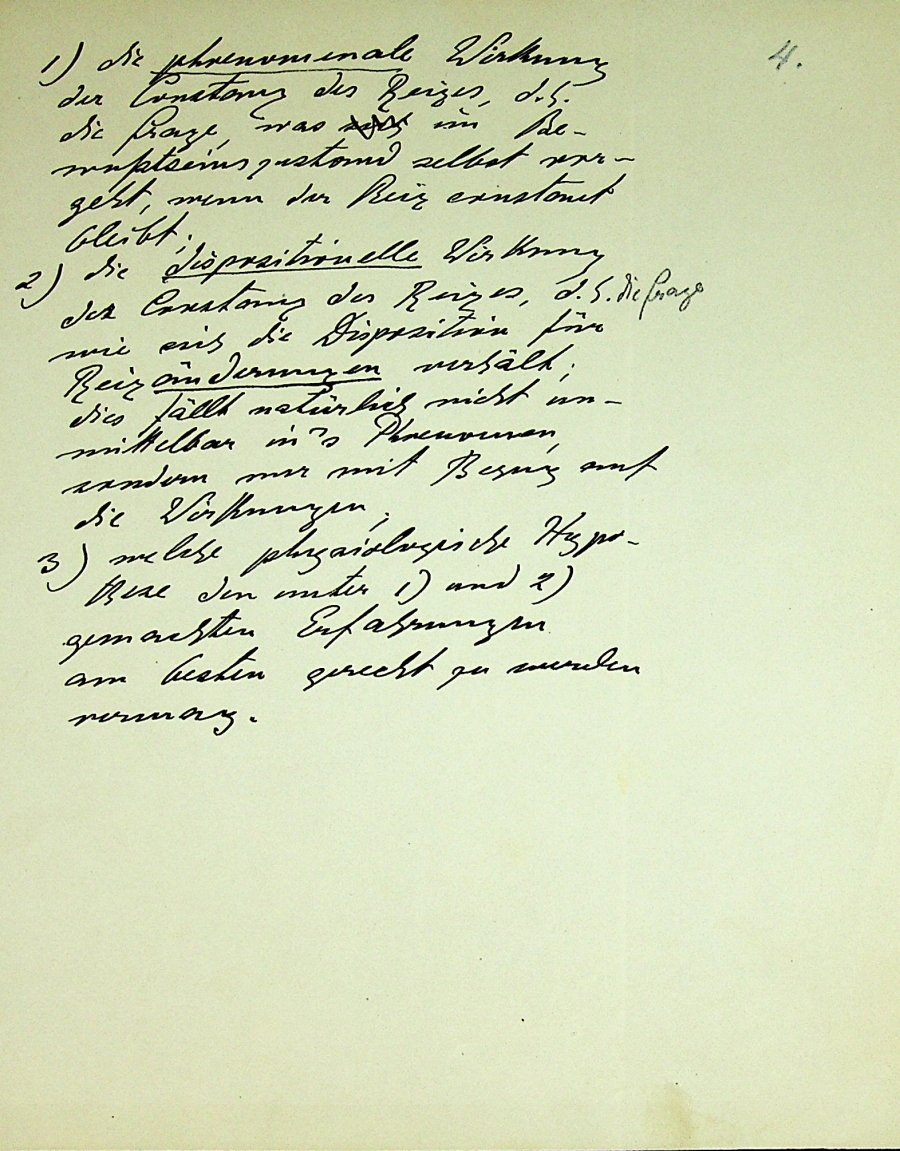 4.
1) die phaenomenale Wirkung
der Constanz des Reizes, d.h.
die Frage, was im Be-
wußtseinszustand selbst vor-
geht, wenn der Reiz constant
bleibt;
2) die dispositionelle Wirkung
der Constanz des Reizes, d.h. die Frage
wie sich die Disposition für
Reizänderungen verhält;
dies fällt natürlich nicht un-
mittelbar in's Phaenomen,
sondern nur mit Bezug auf
die Wirkungen;
3) welche physiologische Hypo-
these den unter 1) und 2)
gemachten Erfahrungen
am besten gerecht zu werden
vermag.